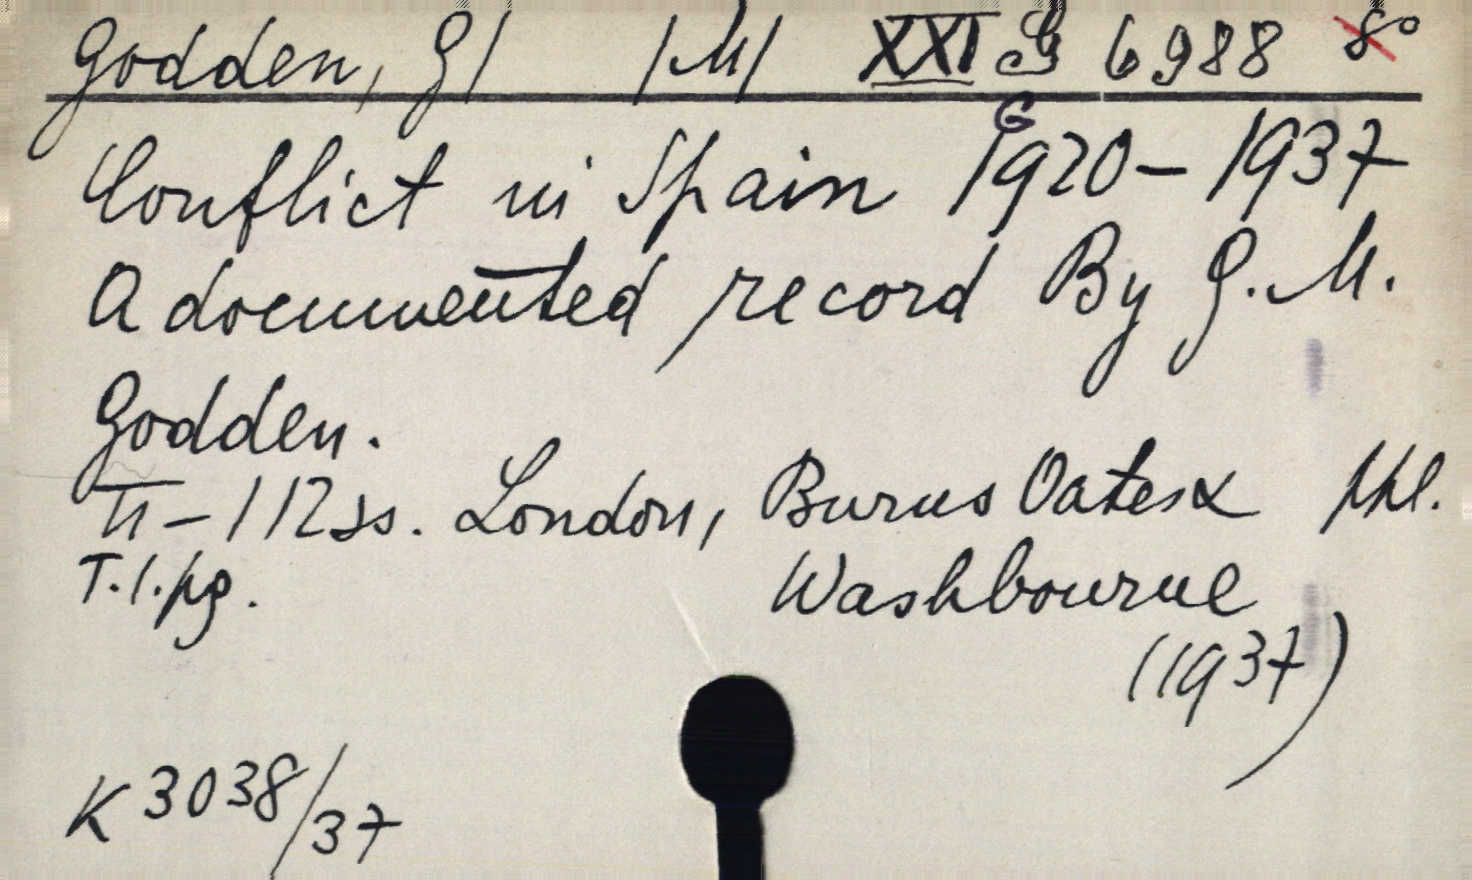 Godden, G/ /M/ XXI G 6988 8°
G
Conflict in Spain 1920-1937
A documented record By G. M.
Godden.
II-112 ss. London, Burns Oates & pkl.
T.l.pg. Washbourne
(1937)
K 3038/37